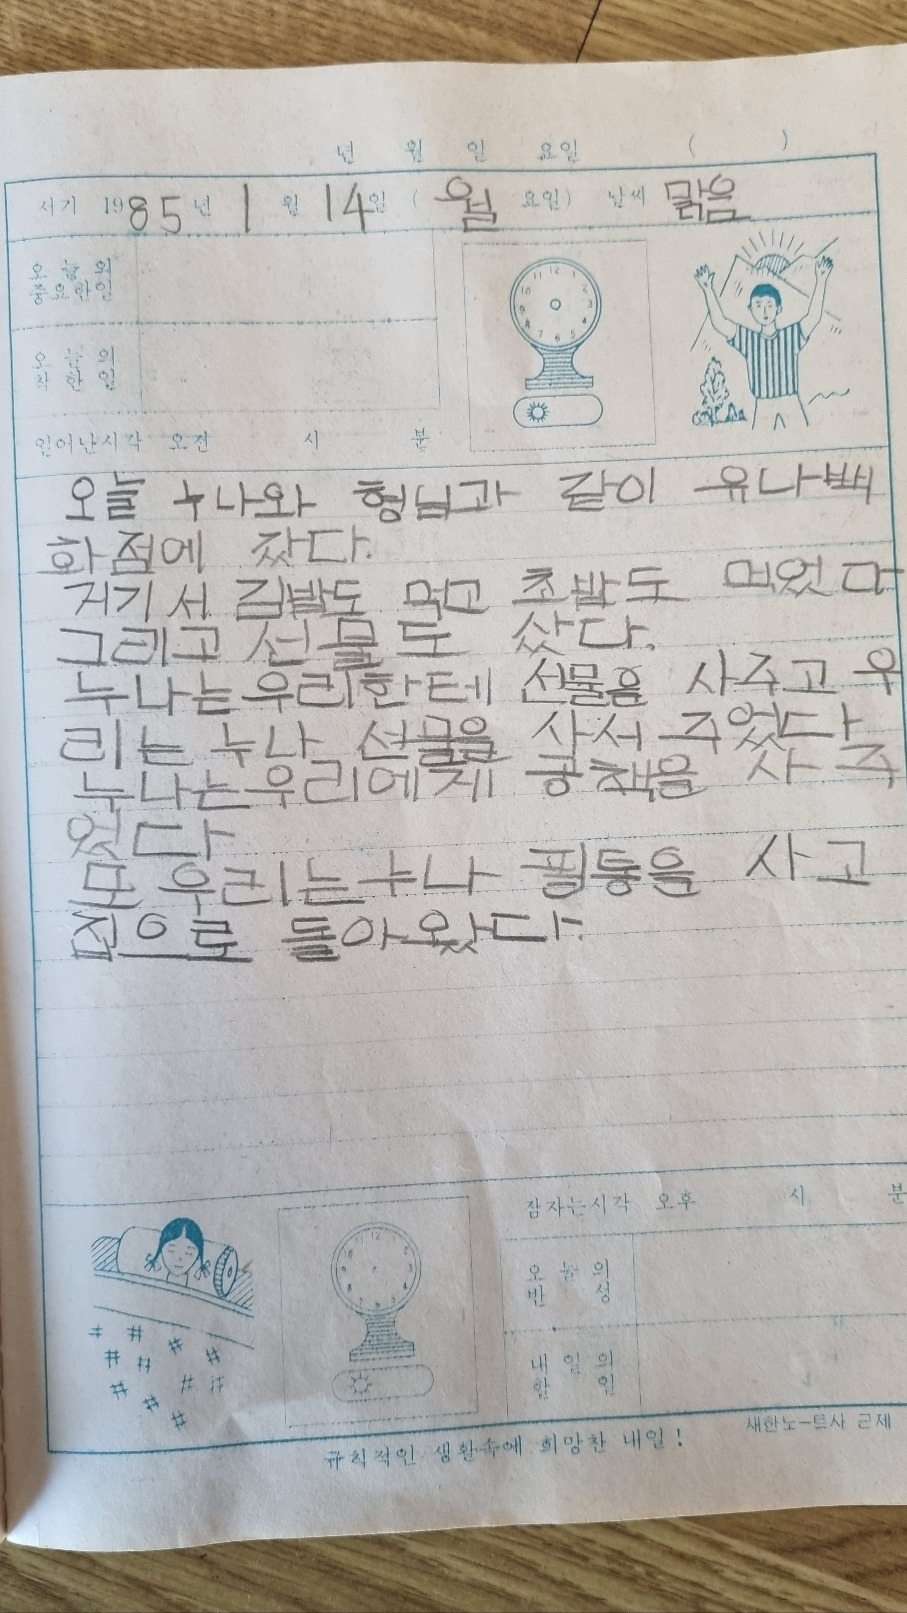 년 월 일 요일 ( )
서기 1985년 1월 14일 (월요일) 날씨 맑음
오늘의
중요한일
오늘의
착한일
일어난시각 오전 시 분
오늘 누나와 형님과 같이 유나백
화점에 갔다.
거기서 김밥도 먹고 초밥도 먹었다
그리고 선물도 샀다.
누나는우리한테 선물을 사주고 우
리는 누나 선물을 사서 주었다
누나는우리에게 공책을 사주
었다
또 우리는누나 필통을 사고
집으로 돌아왔다.
잠자는시각 오후 시 분
오늘의
반성
내일의
할일
새한노-트사 근제
규칙적인 생활속에 희망찬 내일!